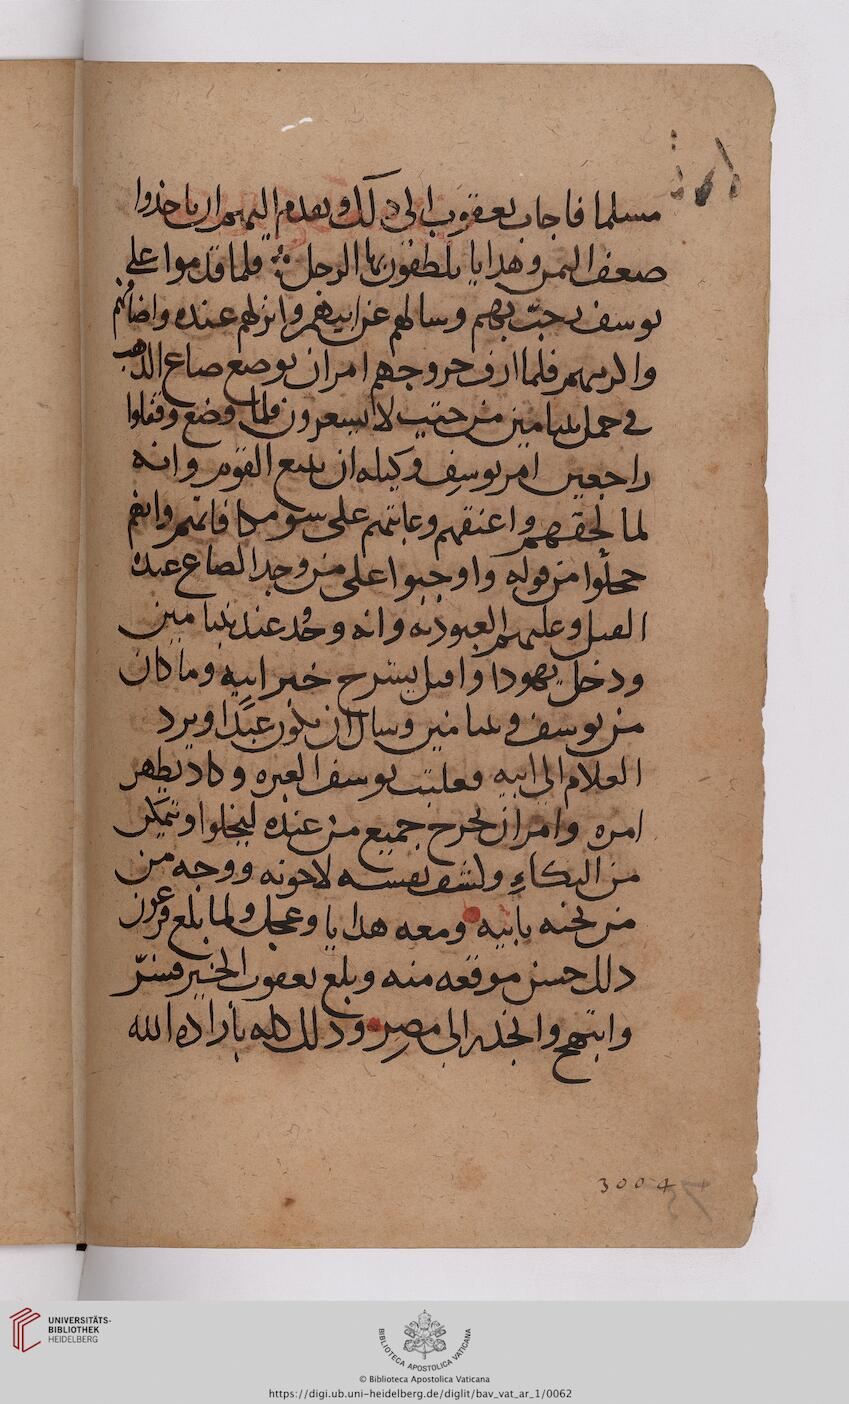 مسلما فاجاب يعقوب الى ذلك وتقدم اليهم ان ياخذوا
ضعف الثمن وهدايا يلطفون بها الرجل فلما قدموا على
يوسف رحب بهم وسالهم عن ابيهم وانزلهم عنده واضافهم
واكرمهم فلما ازف خروجهم امر ان يوضع صاع الذهب
في حمل بنيامين من حيث لا يشعرون فلما وضع وقفلوا
راجعين امر يوسف وكيله ان يتبع القوم وانه
لما لحقهم واعنقهم وعاتبهم على سو مكافاتهم وانهم
خجلوا من قوله واوجبوا على من وجد الصاع عنده
القتل وعليهم العبودية وانه وجد عند بنيامين
ودخل يهودا واقبل يشرح خبر ابيه وما كان
من يوسف و بنيامين وسال ان يكون عبدا ويرد
الغلام الى ابيه فغلبت يوسف العبره وكاد يظهر
امره وامر ان يخرج جميع من عنده ليخلوا ويتمكن
من البكاء وكشف نفسه لاخوته ووجه من
من يجيه بابيه ومعه هدايا وعجل ولما بلغ فرعون
ذلك حسن موقعه منه وبلغ يعقوب الخبر فسر
وابتهج وانحدر الى مصر وذلك كله بأرادة الله
3004
UNIVERSITÄTS-
BIBLIOTHEK
HEIDELBERG
BIBLIOTECA APOSTOLICA VATICANA
© Biblioteca Apostolica Vaticana
https://digi.ub.uni-heidelberg.de/diglit/bav_vat_ar_1/0062